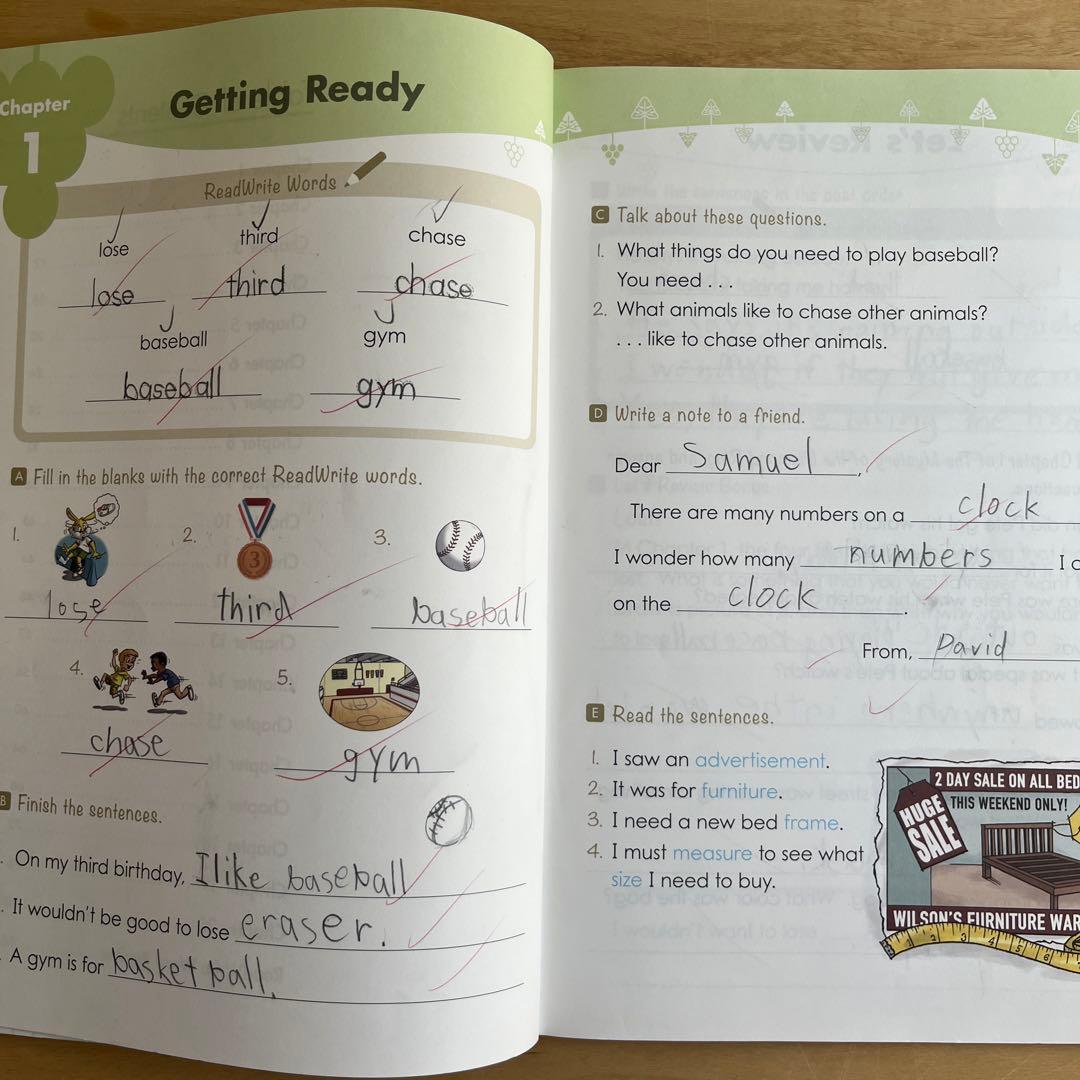 Chapter
1
Getting Ready
ReadWrite Words
lose third chase
lose third chase
baseball gym
baseball gym
A Fill in the blanks with the correct ReadWrite words.
1. 2. 3 3.
lose third baseball
4. 5.
chase gym
B Finish the sentences.
On my third birthday, I like baseball
. It wouldn't be good to lose eraser.
. A gym is for basketball.
C Talk about these questions.
1. What things do you need to play baseball?
You need . . .
2. What animals like to chase other animals?
. . . like to chase other animals.
D Write a note to a friend.
Dear Samuel ,
There are many numbers on a clock
I wonder how many numbers I c
on the clock .
From, David
E Read the sentences.
1. I saw an advertisement.
2. It was for furniture.
3. I need a new bed frame.
4. I must measure to see what
size I need to buy.
2 DAY SALE ON ALL BED
THIS WEEKEND ONLY!
HUGE
SALE
WILSON'S FURNITURE WAR
2 3 4 5 6